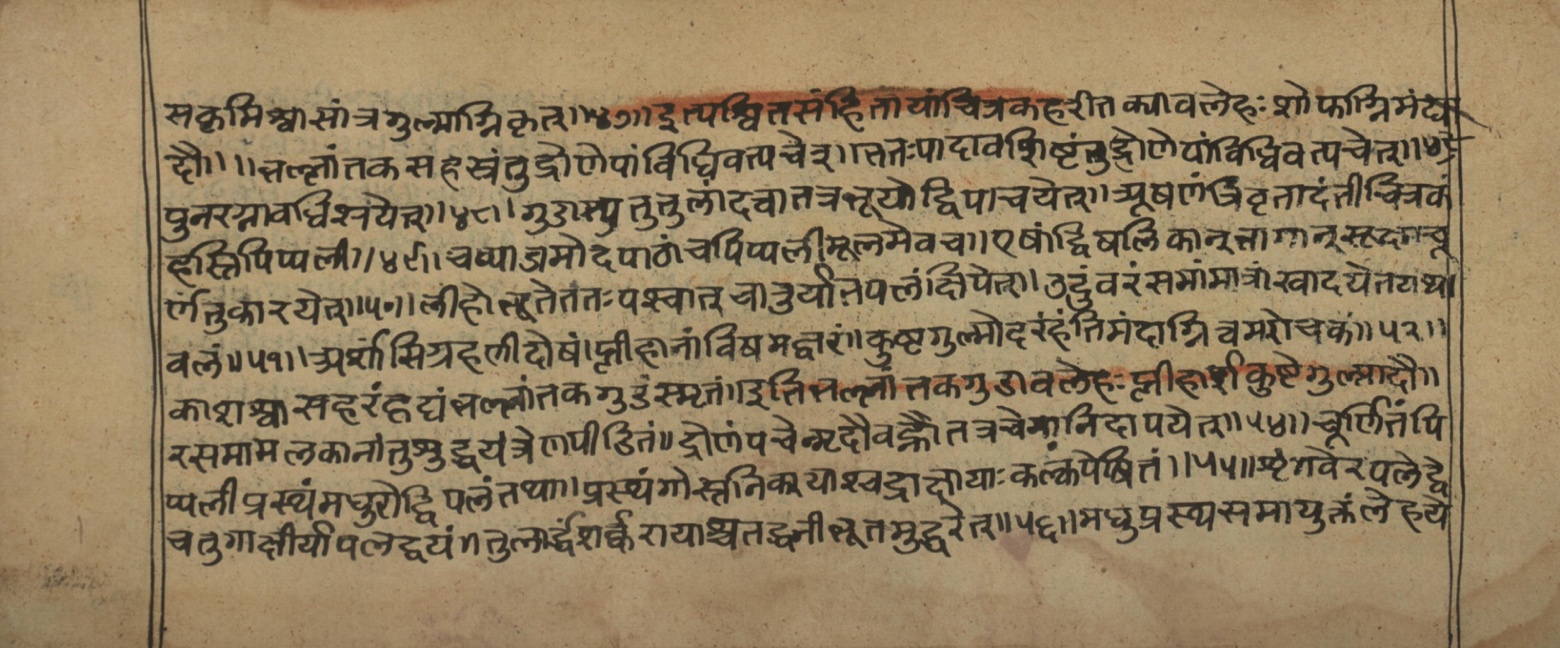 सकृमिश्वासांत्रगुल्माग्निकृत्॥४७॥इत्यश्वितसंहितायांचित्रकहरीतक्यावलेहः शोफाग्निमंद्या
दौ॥॥भल्लांतकसहस्रंतुद्रोणेपांविधिवत्पचेत्॥ततःपादावशिष्टंतुद्रोणेपांविधिवत्पचेत्॥
पुनरग्नावधिश्रयेत्॥४८॥गुडास्यतुतुलांदत्वातत्रभूयोद्विपाचयेत्॥त्र्यूषणंत्रिवृतादंतीचित्रकं
हस्तिपिप्पली॥४९॥चव्याजमोदपाठांचपिप्पलीमूलमेवच॥एषांद्विपलिकान्भागान्सूक्ष्मचू
र्णंतुकारयेत्॥५०॥लीहोभूतेततःपश्चात्चातुर्यातपलंक्षिपेत्॥उदुंवरंसमांमात्रांखादयेतयथा
वलं॥५१॥अर्शांसिग्रहणीदोषंप्लीहानांविषमज्वरं॥कुष्टगुल्मोदरंहंतिमंदाग्नित्वमरोचकं॥५२॥
काशश्वासहरंहृद्यंभल्लांतकगुडंस्मृतं॥इतिभल्लांतकगुडावलेहःप्लीहार्शकुष्टेगुल्मादौ॥
रसमामलकानांतुशुद्धयंत्रेणपीडितं॥द्रोणंपचेन्मृदौवह्नौतत्रचेमानिदापयेत्॥५४॥चूर्णितंपि
प्पलीप्रस्थंमधुरोद्विपलंतथा॥प्रस्थंगोस्तनिकायाश्चद्राक्षायाःकल्कपेषितं॥५५॥शृंगवेरपलेद्वे
चतुगाक्षीर्यापलद्वयं॥तुलार्द्धंशर्क्करायाश्चतद्घनीभूतमुद्धरेत्॥५६॥मधुप्रस्थसमायुक्तंलेहये